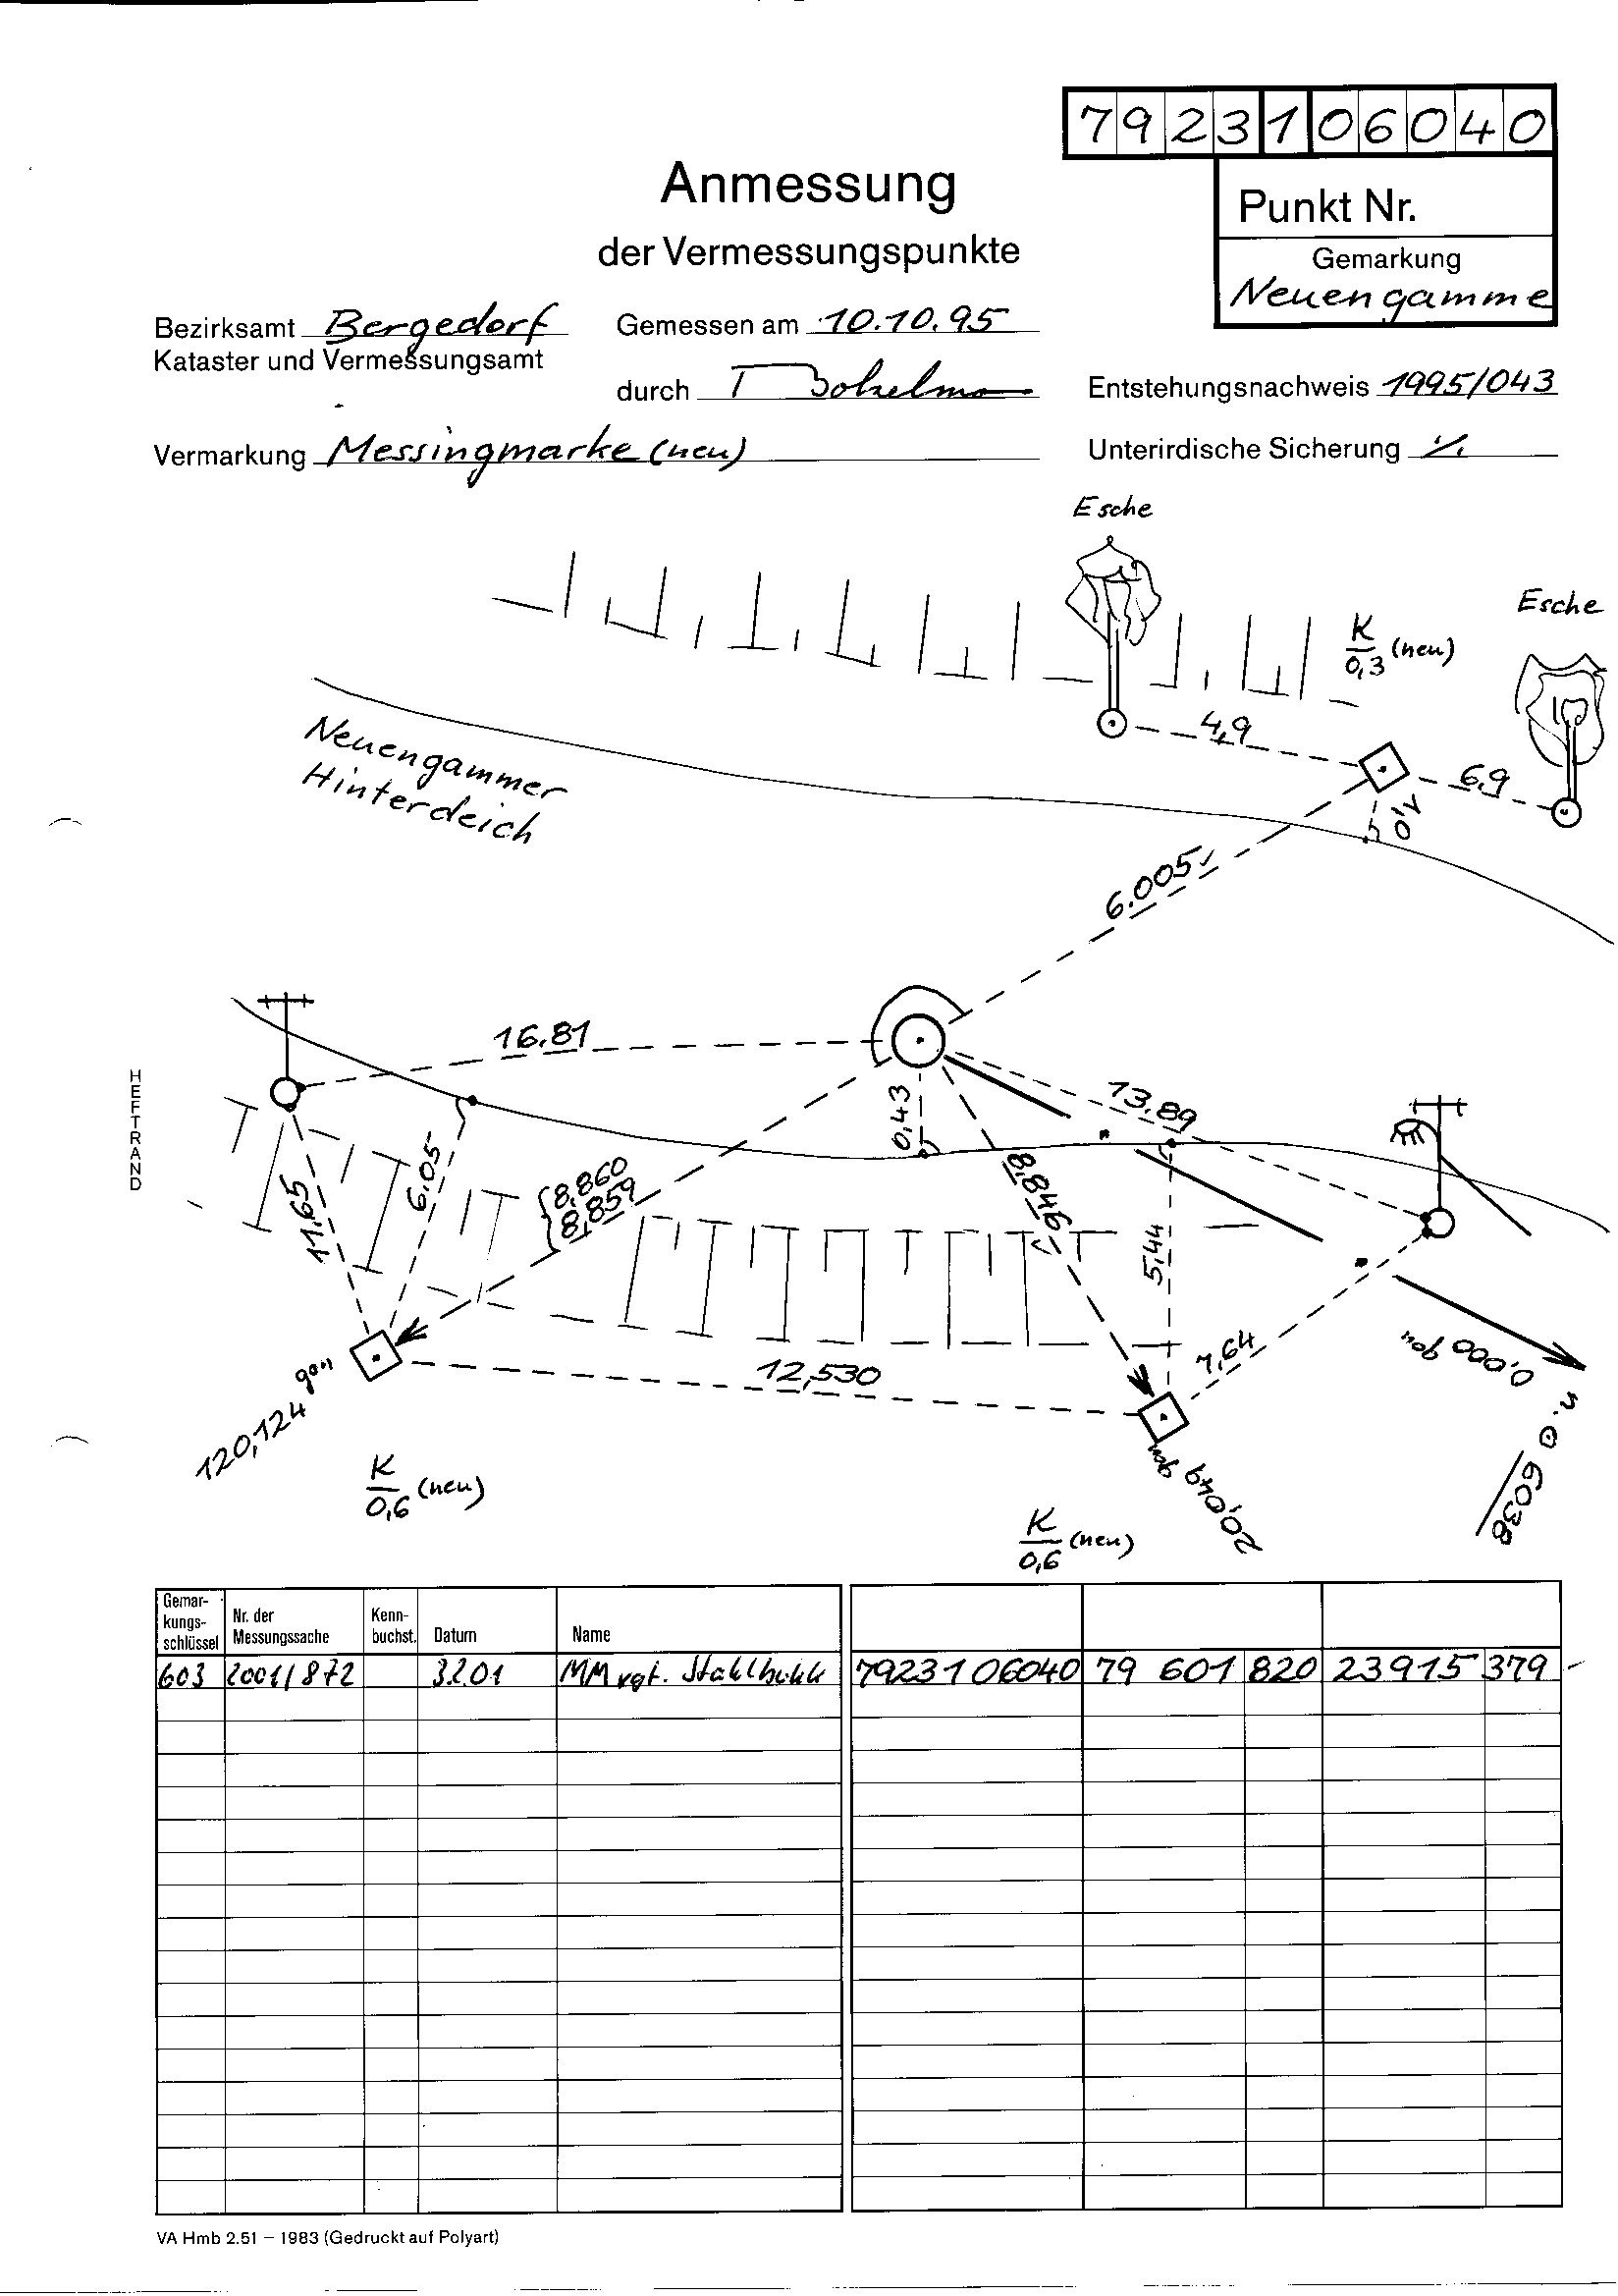 7923106040
Anmessung
der Vermessungspunkte
Punkt Nr.
Gemarkung
Neuengamme
Bezirksamt Bergedorf
Kataster und Vermessungsamt
Gemessen am 10.10.95
durch
Entstehungsnachweis 1995/043
Vermarkung Messingmarke (neu)
Unterirdische Sicherung ·/.
Esche
Esche
K
0,3 (neu)
4,9
6,9
1,0
Neuengammer
Hinterdeich
6.005
16,81
HEFTRAND
0,43
13,89
11,65
6,05
8,860
8,859
8,846
5,44
7,64
12,530
0,000 gon
n. ⊙ 6038
120,124 gon
20,049 gon
K
0,6 (neu)
K
0,6 (neu)
Gemar-
kungs-
schlüssel
Nr. der
Messungssache
Kenn-
buchst.
Datum
Name
603 2001/872 3.2.01 MM vgf. 7923106040 79 601 820 23915 379
VA Hmb 2.51 – 1983 (Gedruckt auf Polyart)